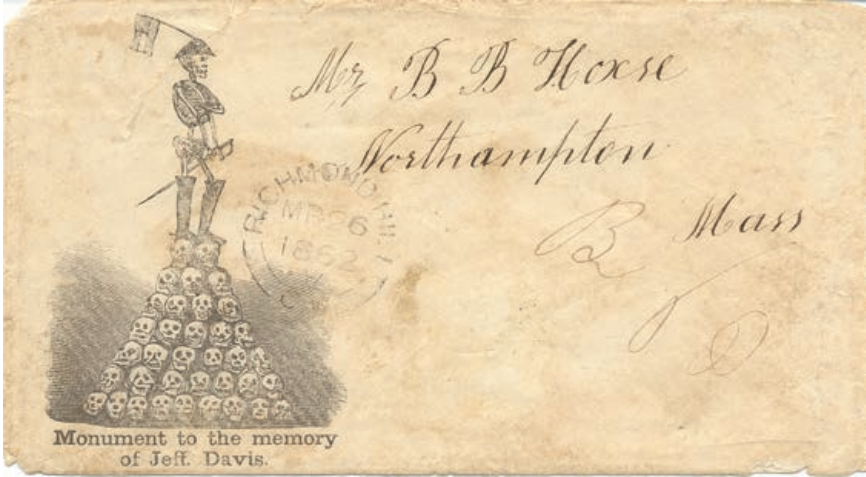 Mr B B Hoxse
Northampton
Mass
B
RICHMOND HILL
MR 26
1862
Monument to the memory
of Jeff. Davis.